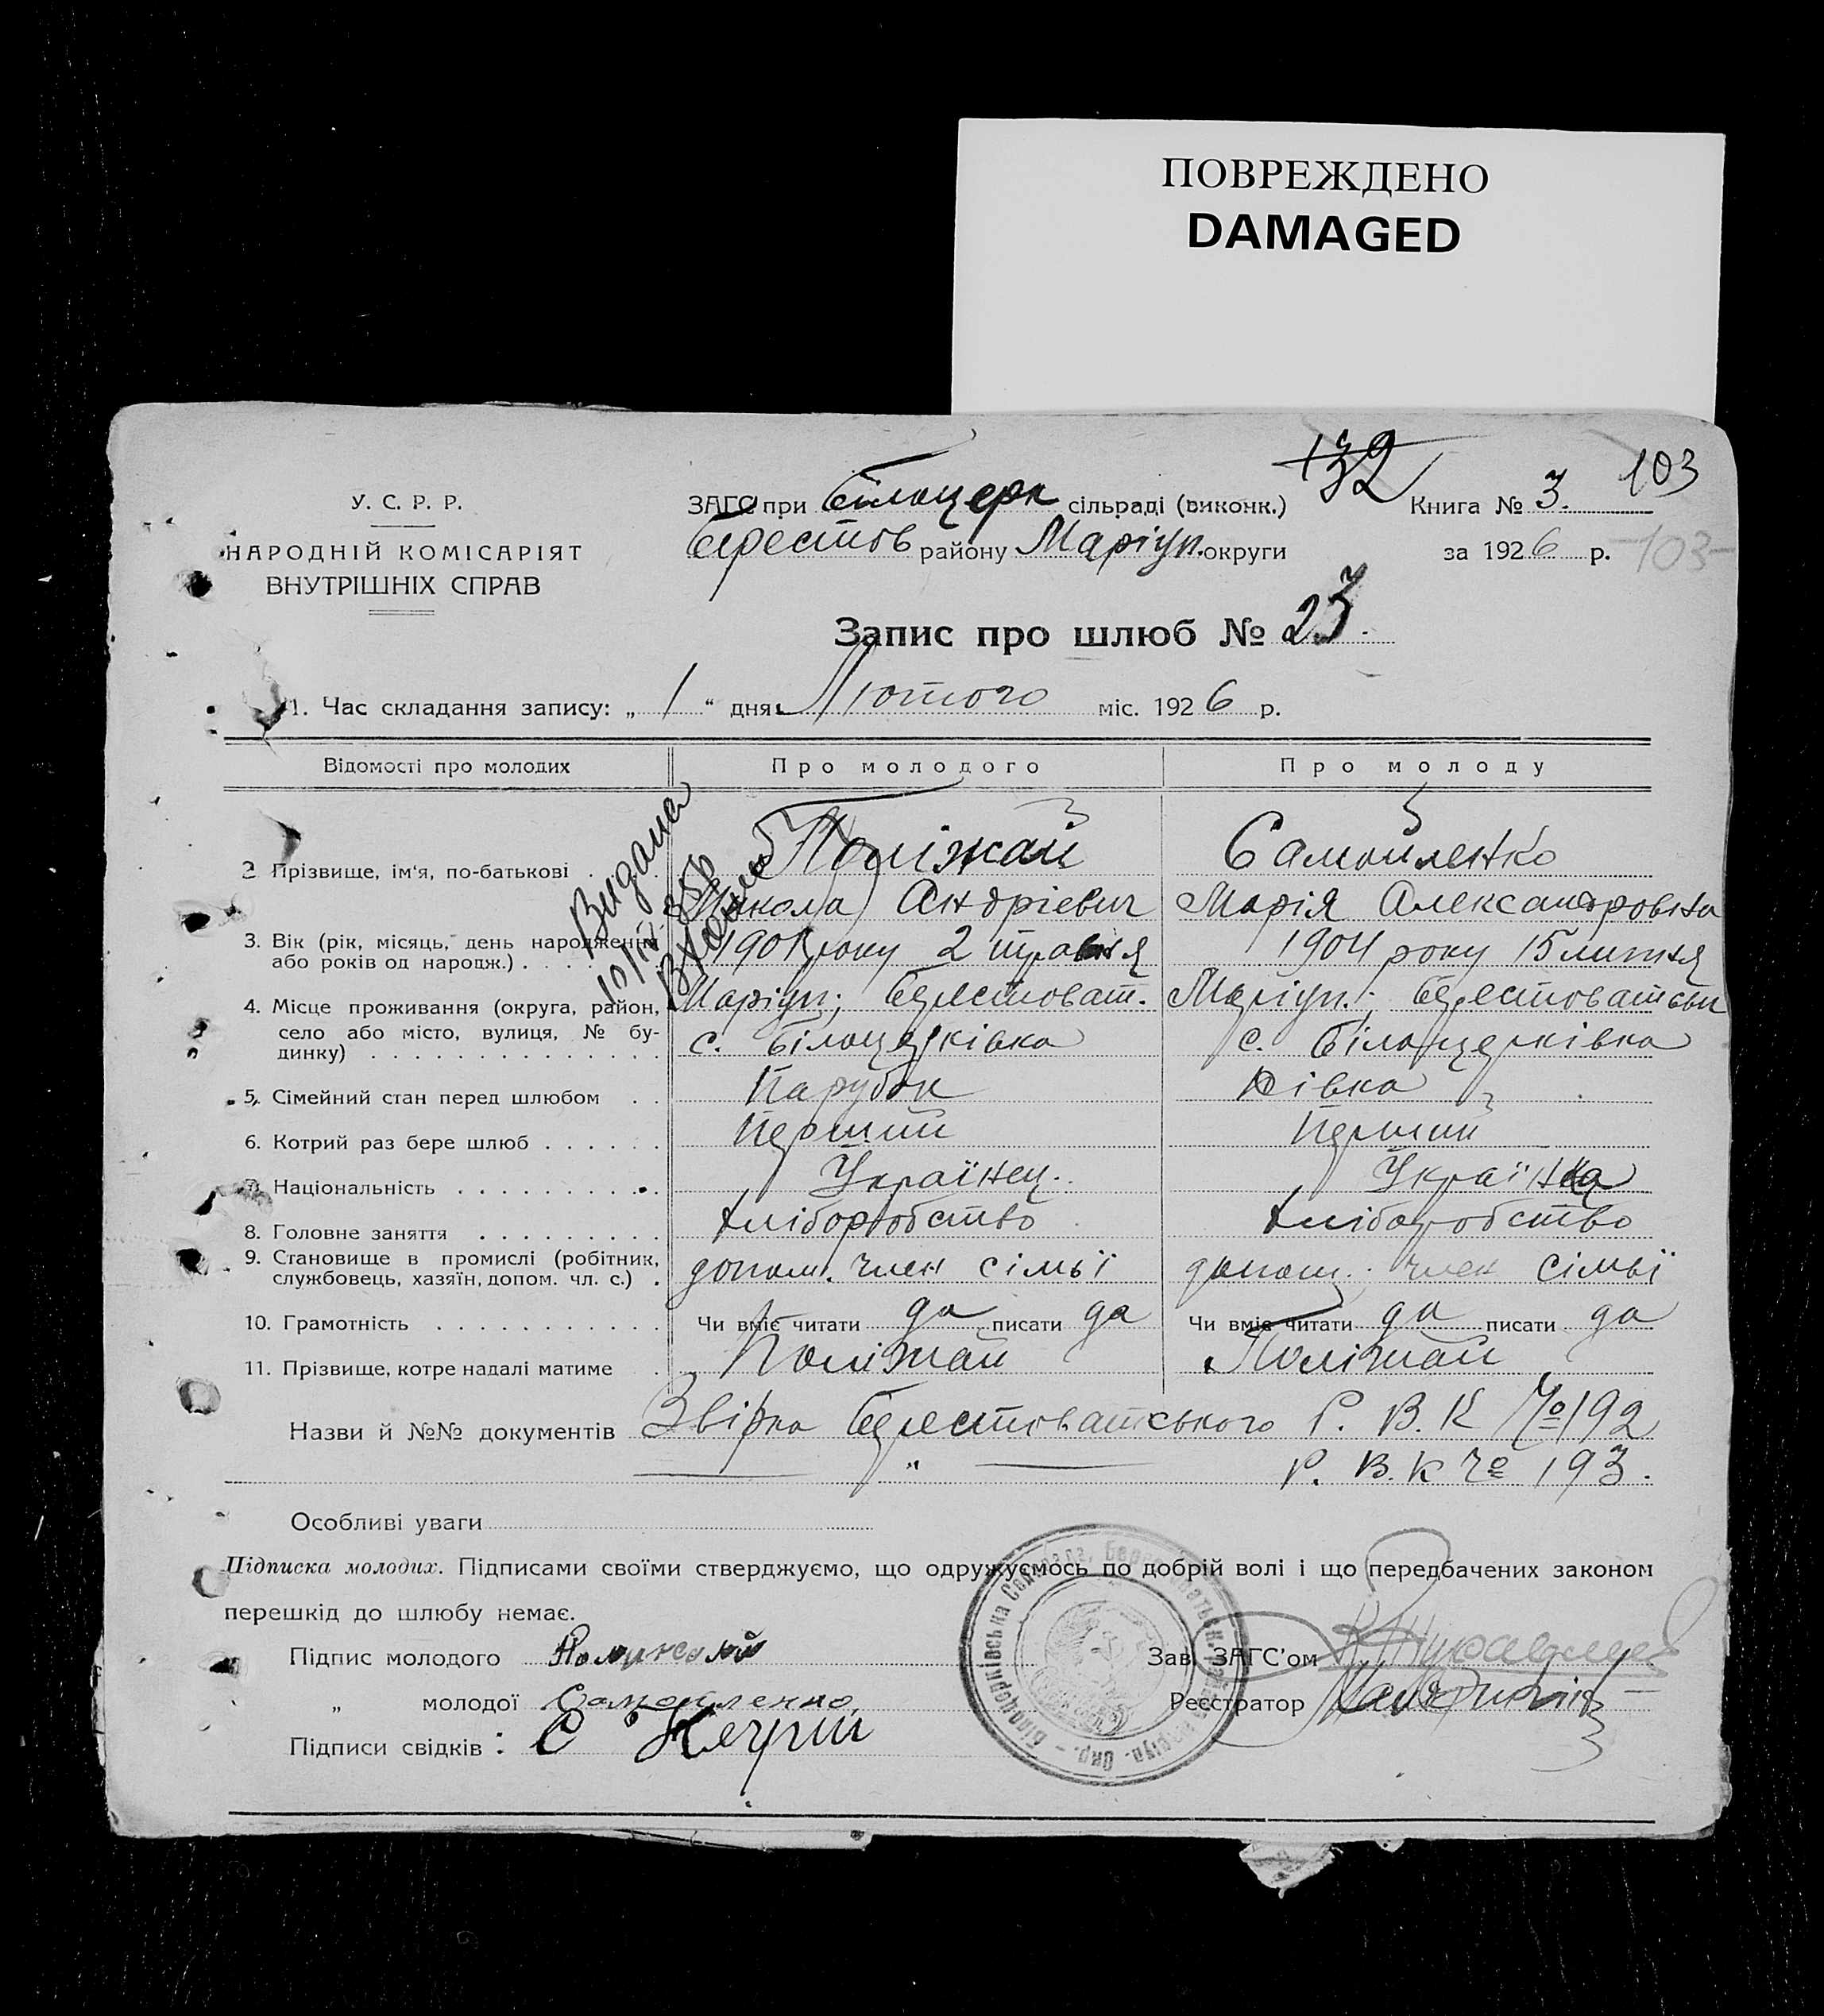 ПОВРЕЖДЕНО
DAMAGED
132
103
У. С. Р. Р.
ЗАГС при Білоцерк сільраді (виконк.) Книга № 3.
НАРОДНІЙ КОМІСАРІЯТ
ВНУТРІШНІХ СПРАВ
Берестов району Маріуп. округи за 1926 р. -103-
Запис про шлюб № 23.
1. Час складання запису: „ 1 “ дня Лютого міс. 1926 р.
Відомості про молодих Про молодого Про молоду
Видана
2 Прізвище, ім'я, по-батькові . Поліжай Самойленко
Микола Андрієвич Марія Александровна
3. Вік (рік, місяць, день народження
або років од народж.) . . . . 1901 року 2 травня 1904 року 15 липня
4. Місце проживання (округа, район,
село або місто, вулиця, № бу-
динку) . . . . . . . . . . . . . .
Маріуп; Берестоват. Маріуп.; Берестоватськ
с. Білоцерківка с. Білоцерківка
5. Сімейний стан перед шлюбом . . Парубок Дівка
6. Котрий раз бере шлюб . . . . . . Перший Перший
7. Національність . . . . . . . . . . Українец. Українка
8. Головне заняття . . . . . . . . . Хліборобство Хліборобство
9. Становище в промислі (робітник,
службовець, хазяїн, допом. чл. с.) . допом. член сімьї допом. член сімьї
10. Грамотність . . . . . . . . . . . Чи вміє читати да писати да Чи вміє читати да писати да
11. Прізвище, котре надалі матиме . Поліжай Поліжай
Назви й №№ документів Звірка Берестоватського Р. В. К № 192
„ Р. В. К № 193.
Особливі уваги
Підписка молодих. Підписами своїми стверджуємо, що одружуємось по добрій волі і що передбачених законом
перешкід до шлюбу немає.
Підпис молодого Полижай Зав. ЗАГС'ом
„ молодої Самойленко Реєстратор
Підписи свідків : С